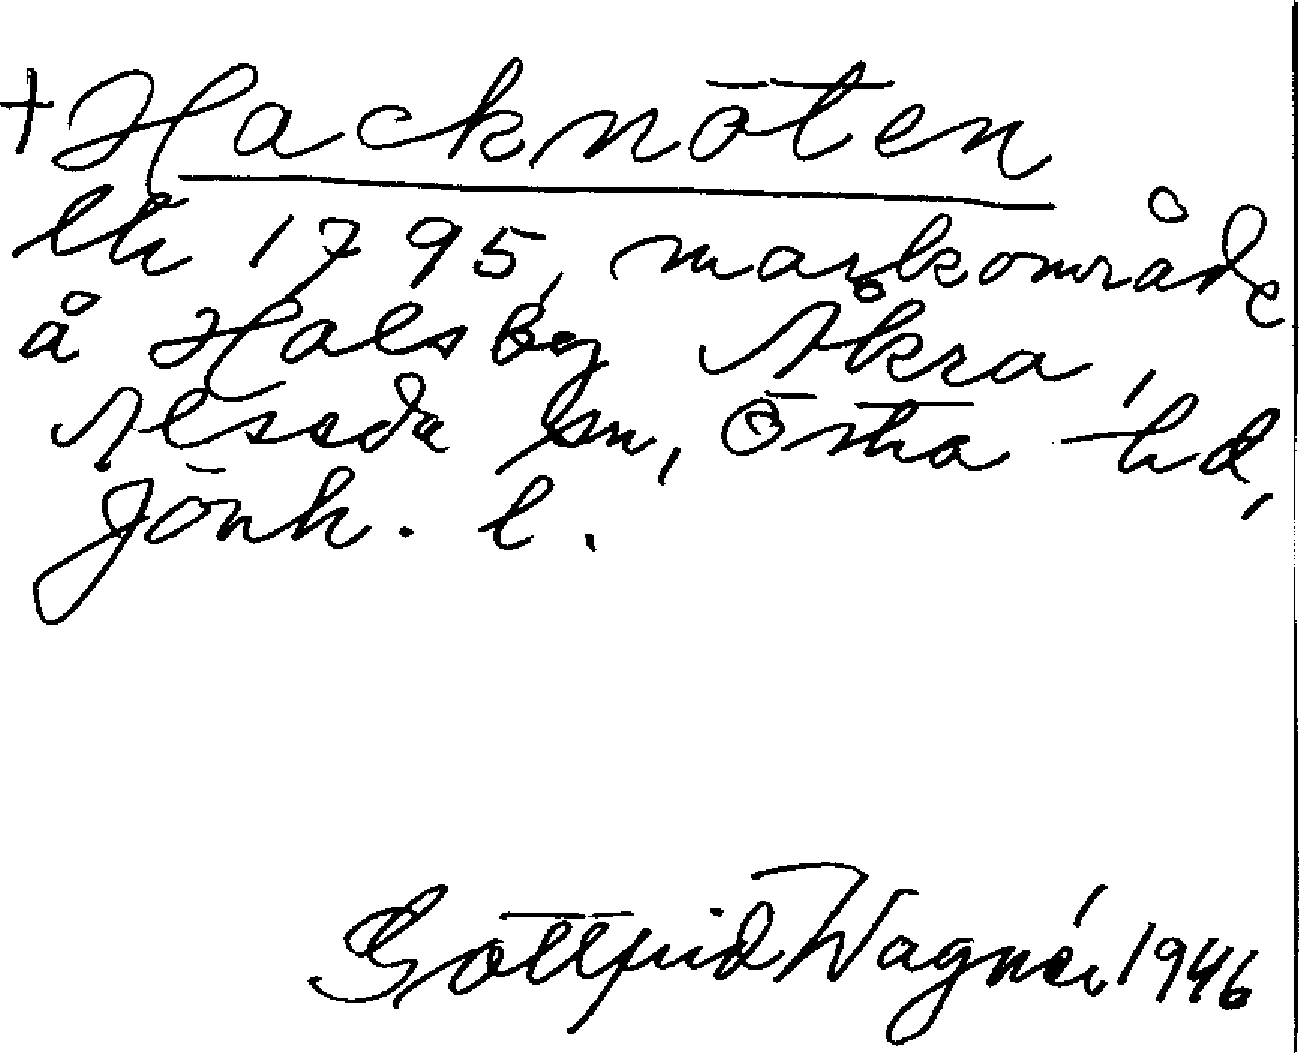 + Hacknöten
lk 1795, markområde
å Halsby Åkra,
Alseda sn, Östra hd,
Jönk. l.
Gottfrid Wagnér, 1946